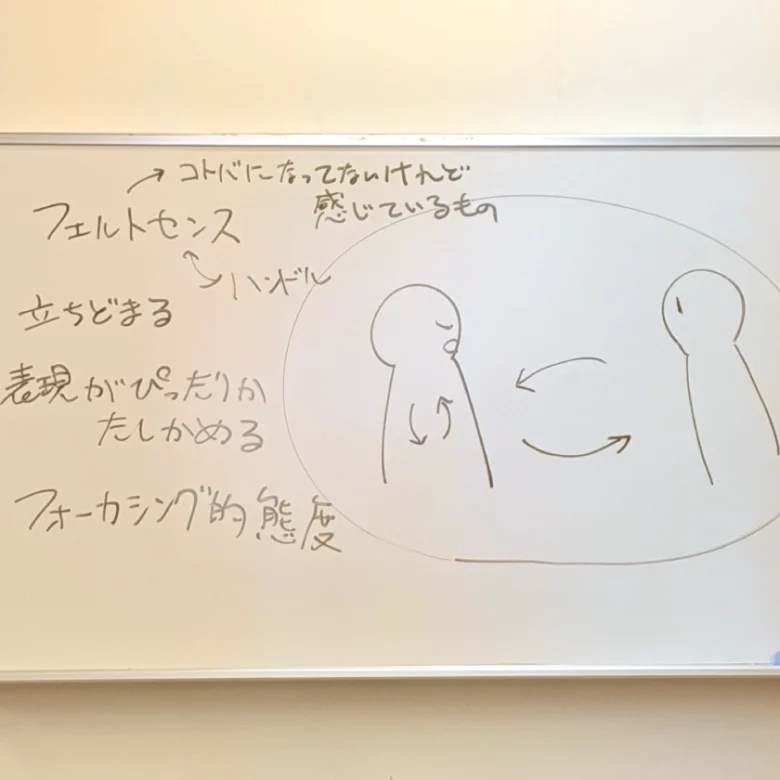 コトバになってないけれど
感じているもの
フェルトセンス
ハンドル
立ちどまる
表現がぴったりか
たしかめる
フォーカシング的態度